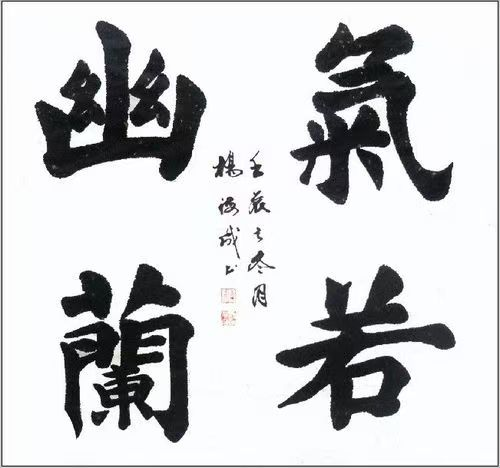 氣若
幽蘭
壬辰之冬月
楊海成书